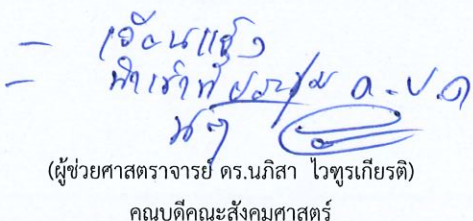 - เวียนแจ้ง
- นำเข้าที่ประชุม
(ผู้ช่วยศาสตราจารย์ ดร.นภิสา ไวฑูรเกียรติ)
คณบดีคณะสังคมศาสตร์